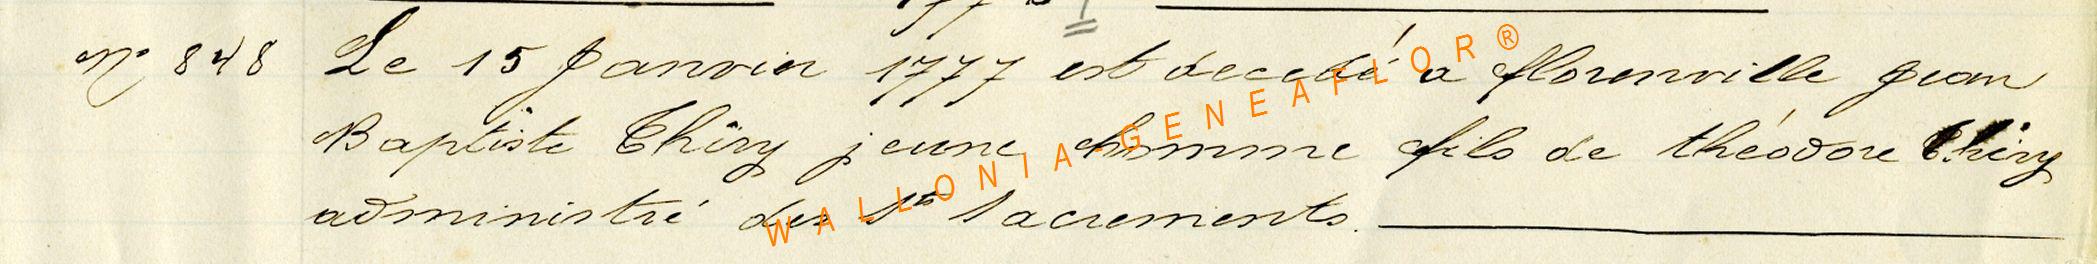 N° 848 Le 15 Janvier 1777 est decedé a florenville jean
Baptiste Thiry jeune homme fils de théodore Thiry
administré des Sts Sacrements.
WALLONIA-GENEAFLOR®